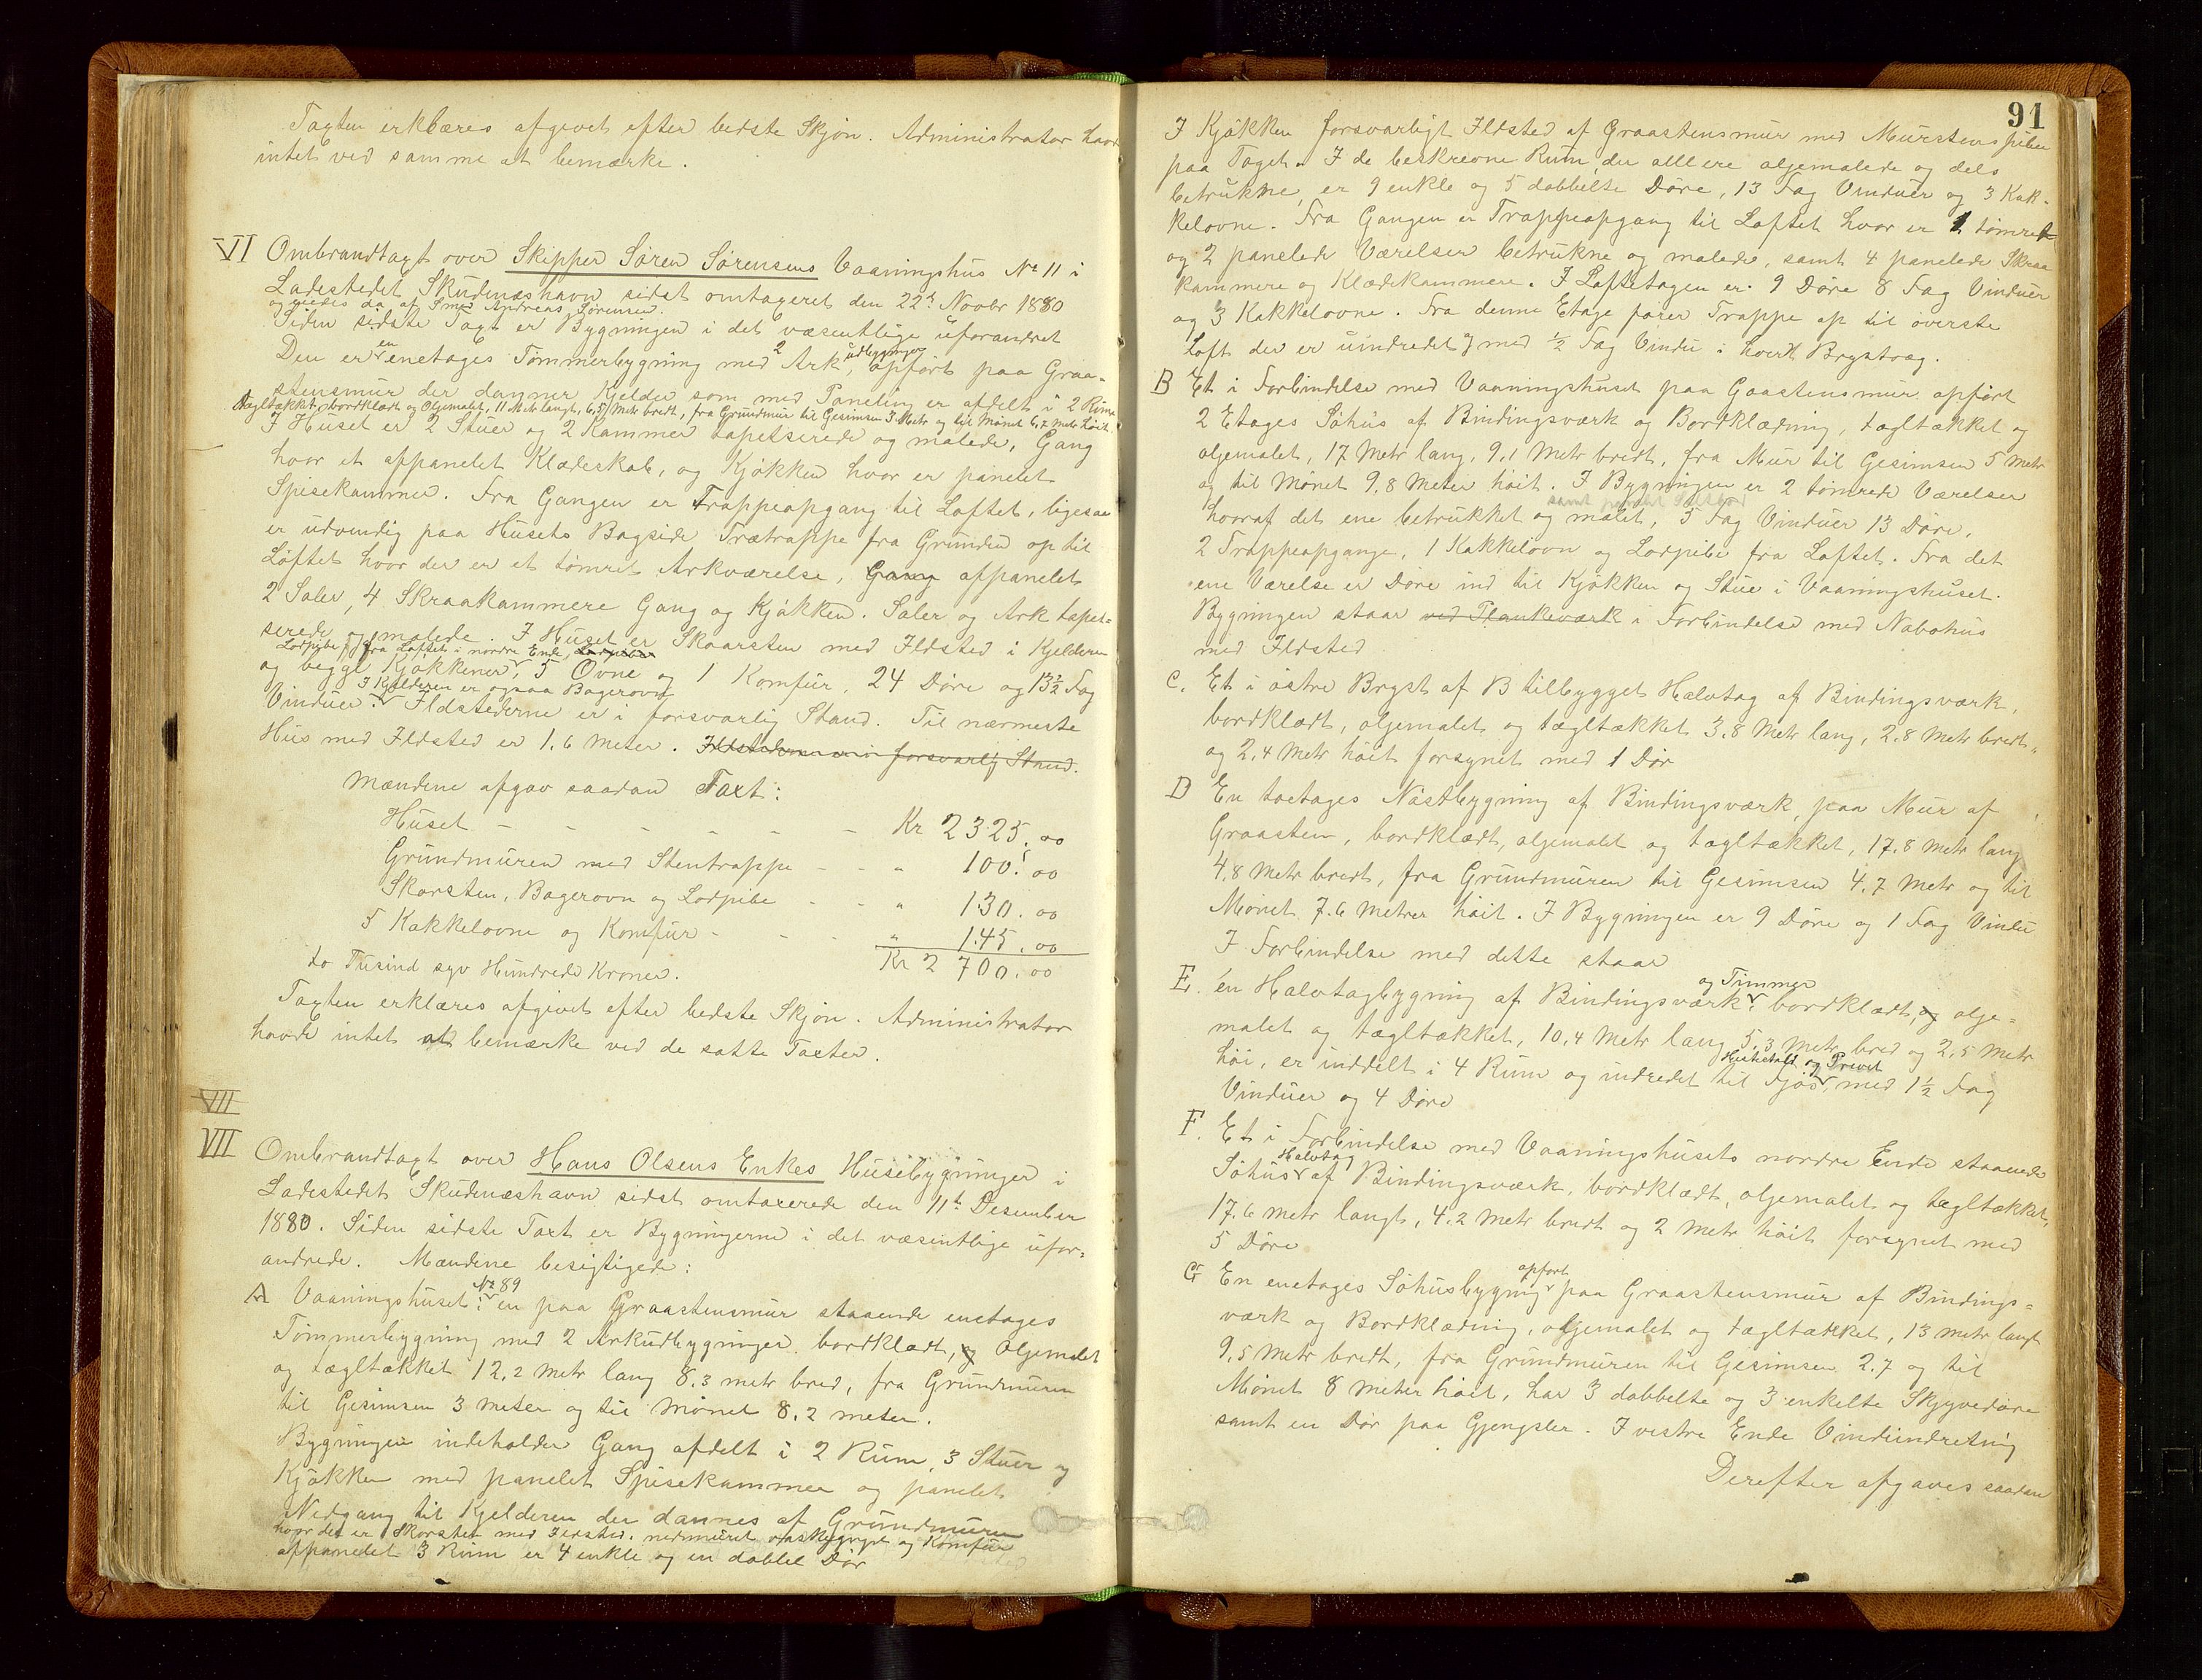 Taxten erklæres afgivet efter bedste Skjøn. Administrator havde
intet ved samme at bemærke.
VI Ombrandtaxt over Skipper Søren Sørensens Vaaningshus No 11 i
Ladestedet Skudenæshavn sidst omtaxeret den 22de Novbr 1880
og eiedes da af Smed Andreas Sørensen.
Siden sidste Taxt er Bygningen i det væsentlige uforandret
Den er en enetages Tømmerbygning med 2 Ark udbygninger, opført paa Graa-
stensmur der danner Kjelder som med Paneling er afdelt i 2 Rum
Tagltækket, bordklædt og Oljemalet, 11 Metr langt, 6,5 Metr bredt, fra Grundmur til Gesimsen 3 Metr og til Mønet 6,7 Metr høit.
I Huset er 2 Stuer og 2 Kammer tapetserede og malede, Gang
hvor et afpanelet Klædeskab, og Kjøkken hvor er panelet
Spisekammer. Fra Gangen er Trappeopgang til Loftet, ligesaa
er udvendig paa Husets Bagside Trætrappe fra Grunden op til
Loftet hvor der er et tømret Arkværelse, Gang afpanelet
2 Saler, 4 Skraakammere Gang og Kjøkken. Saler og Ark tapet-
serede og malede. I Huset er Skaarsten med Ildsted i Kjelderen
Lodpibe fra Loftet i nordre Ende, Lodpiber
og begge Kjøkkener, 5 Ovne og 1 Komfur, 24 Døre og 13½ Fag
I Kjelderen er ogsaa Bagerovn
Vinduer. Ildstederne er i forsvarlig Stand. Til nærmeste
Hus med Ildsted er 1.6 Meter. Ildstederne er i forsvarlig Stand.
Mændene afgav saadan Taxt:
Huset - - - - - - Kr 2325.00
Grundmuren med Stentrappe - - " 100.00
Skorsten, Bagerovn og Lodpibe - - " 130.00
5 Kakkelovne og Komfur - - - " 145.00
to Tusind syv Hundrede Kroner. Kr 2 700.00
Taxten erklæres afgivet efter bedste Skjøn. Administrator
havde intet at bemærke ved de satte Taxter.
VII
VII Ombrandtaxt over Hans Olsens Enkes Husebygninger i
Ladestedet Skudenæshavn sidst omtaxerede den 11te Desember
1880. Siden sidste Taxt er Bygningerne i det væsentlige ufor-
andrede. Mændene besigtigede:
A Vaaningshuset No 89: en paa Graastensmur staaende enetages
Tømmerbygning med 2 Arkudbygninger, bordklædt, og Oljemalet
og tægltækket 12,2 Metr lang 8.3 metr bred, fra Grundmuren
til Gesimsen 3 meter og til Mønet 8.2 meter.
Bygningen indeholder Gang afdelt i 2 Rum, 3 Stuer og
Kjøkken med panelet Spisekammer og panelet
Nedgang til Kjelderen der dannes af Grundmuren
hvor der er Skorsten med Ildsted. nedmuret vaskegryde og Komfur
afpanelet 3 Rum er 4 enkle og en dobbel Dør
91
I Kjøkken forsvarligt Ildsted af Graastensmur med Murstenspiber
paa Taget. I de beskrevne Rum, der alle ere oljemalede og dels
betrukne, er 9 enkle og 5 dobbelte Døre, 13 Fag Vinduer og 3 Kak-
kelovne. Fra Gangen er Trappeopgang til Loftet hvor er 1 tømret
og 2 panelede Værelser betrukne og malede, samt 4 panelede Skraa
kammere og Klædekammere. I Loftetagen er 9 Døre 8 Fag Vinduer
og 3 Kakkelovne. Fra denne Etage fører Trappe op til øverste
Loft der er uindredet og med ½ Fag Vindu i hvert Brystvæg.
B Et i Forbindelse med Vaaningshuset paa Gaastensmur opført
2 Etages Søhus af Bindingsværk og Bordklædning, tagltækket og
oljemalet, 17 Metr lang, 9.1 Metr bredt, fra Mur til Gesimsen 5 metr
og til Mønet 9,8 Meter høit. I Bygningen er 2 tømrede Værelser
hvoraf det ene betrukket og malet, 5 Fag Vinduer 13 Døre,
2 Trappeopgange, 1 Kakkelovn og Lodpibe fra Loftet. Fra det
ene Værelse er Døre ind til Kjøkken og Stue i Vaaningshuset.
Bygningen staar ved Plankeværk i Forbindelse med Nabohus
med Ildsted
C. Et i østre Bryst af B tilbygget Halvtag af Bindingsværk,
bordklædt, oljemalet og tægltækket 3.8 Metr lang, 2.8 Metr bredt
og 2.4 Metr høit forsynet med 1 Dør
D En toetages Nøstbygning af Bindingsværk, paa Mur af
Graasten, bordklædt, oljemalet og tagltækket, 17.8 Metr lang
4.8 Metr bredt, fra Grundmuren til Gesimsen 4,7 Metr og til
Mønet 7.6 Metrer høit. I Bygningen er 9 Døre og 1 Fag Vindu
I Forbindelse med dette staar
E. en Halvtagbygning af Bindingsværk og Timmer bordklædt, og olje-
malet og tægltækket, 10,4 Metr lang 5,3 Metr bred og 2,5 Metr
høi, er inddelt i 4 Rum og indredet til Fjøs Hestestald og Privet med 1½ Fag
Vinduer og 4 Døre
F. Et i Forbindelse med Vaaningshusets nordre Ende staaende
Søhus Halvtag af Bindingsværk, bordklædt, oljemalet og tægltækket,
17.6 metr langt, 4.2 Metr bredt og 2 Metr høit forsynet med
5 Døre
G En enetages Søhusbygning opført paa Graastensmur af Bindings-
værk og Bordklædning, oljemalet og tægltækket, 13 metr langt
9,5 Metr bredt, fra Grundmuren til Gesimsen 2.7 og til
Mønet 8 Meter høit, har 3 dobbelte og 3 enkelte Skyvedøre
samt en Dør paa Gjengsler. I vestre Ende Vindindretnig
Derefter afgaves saadan